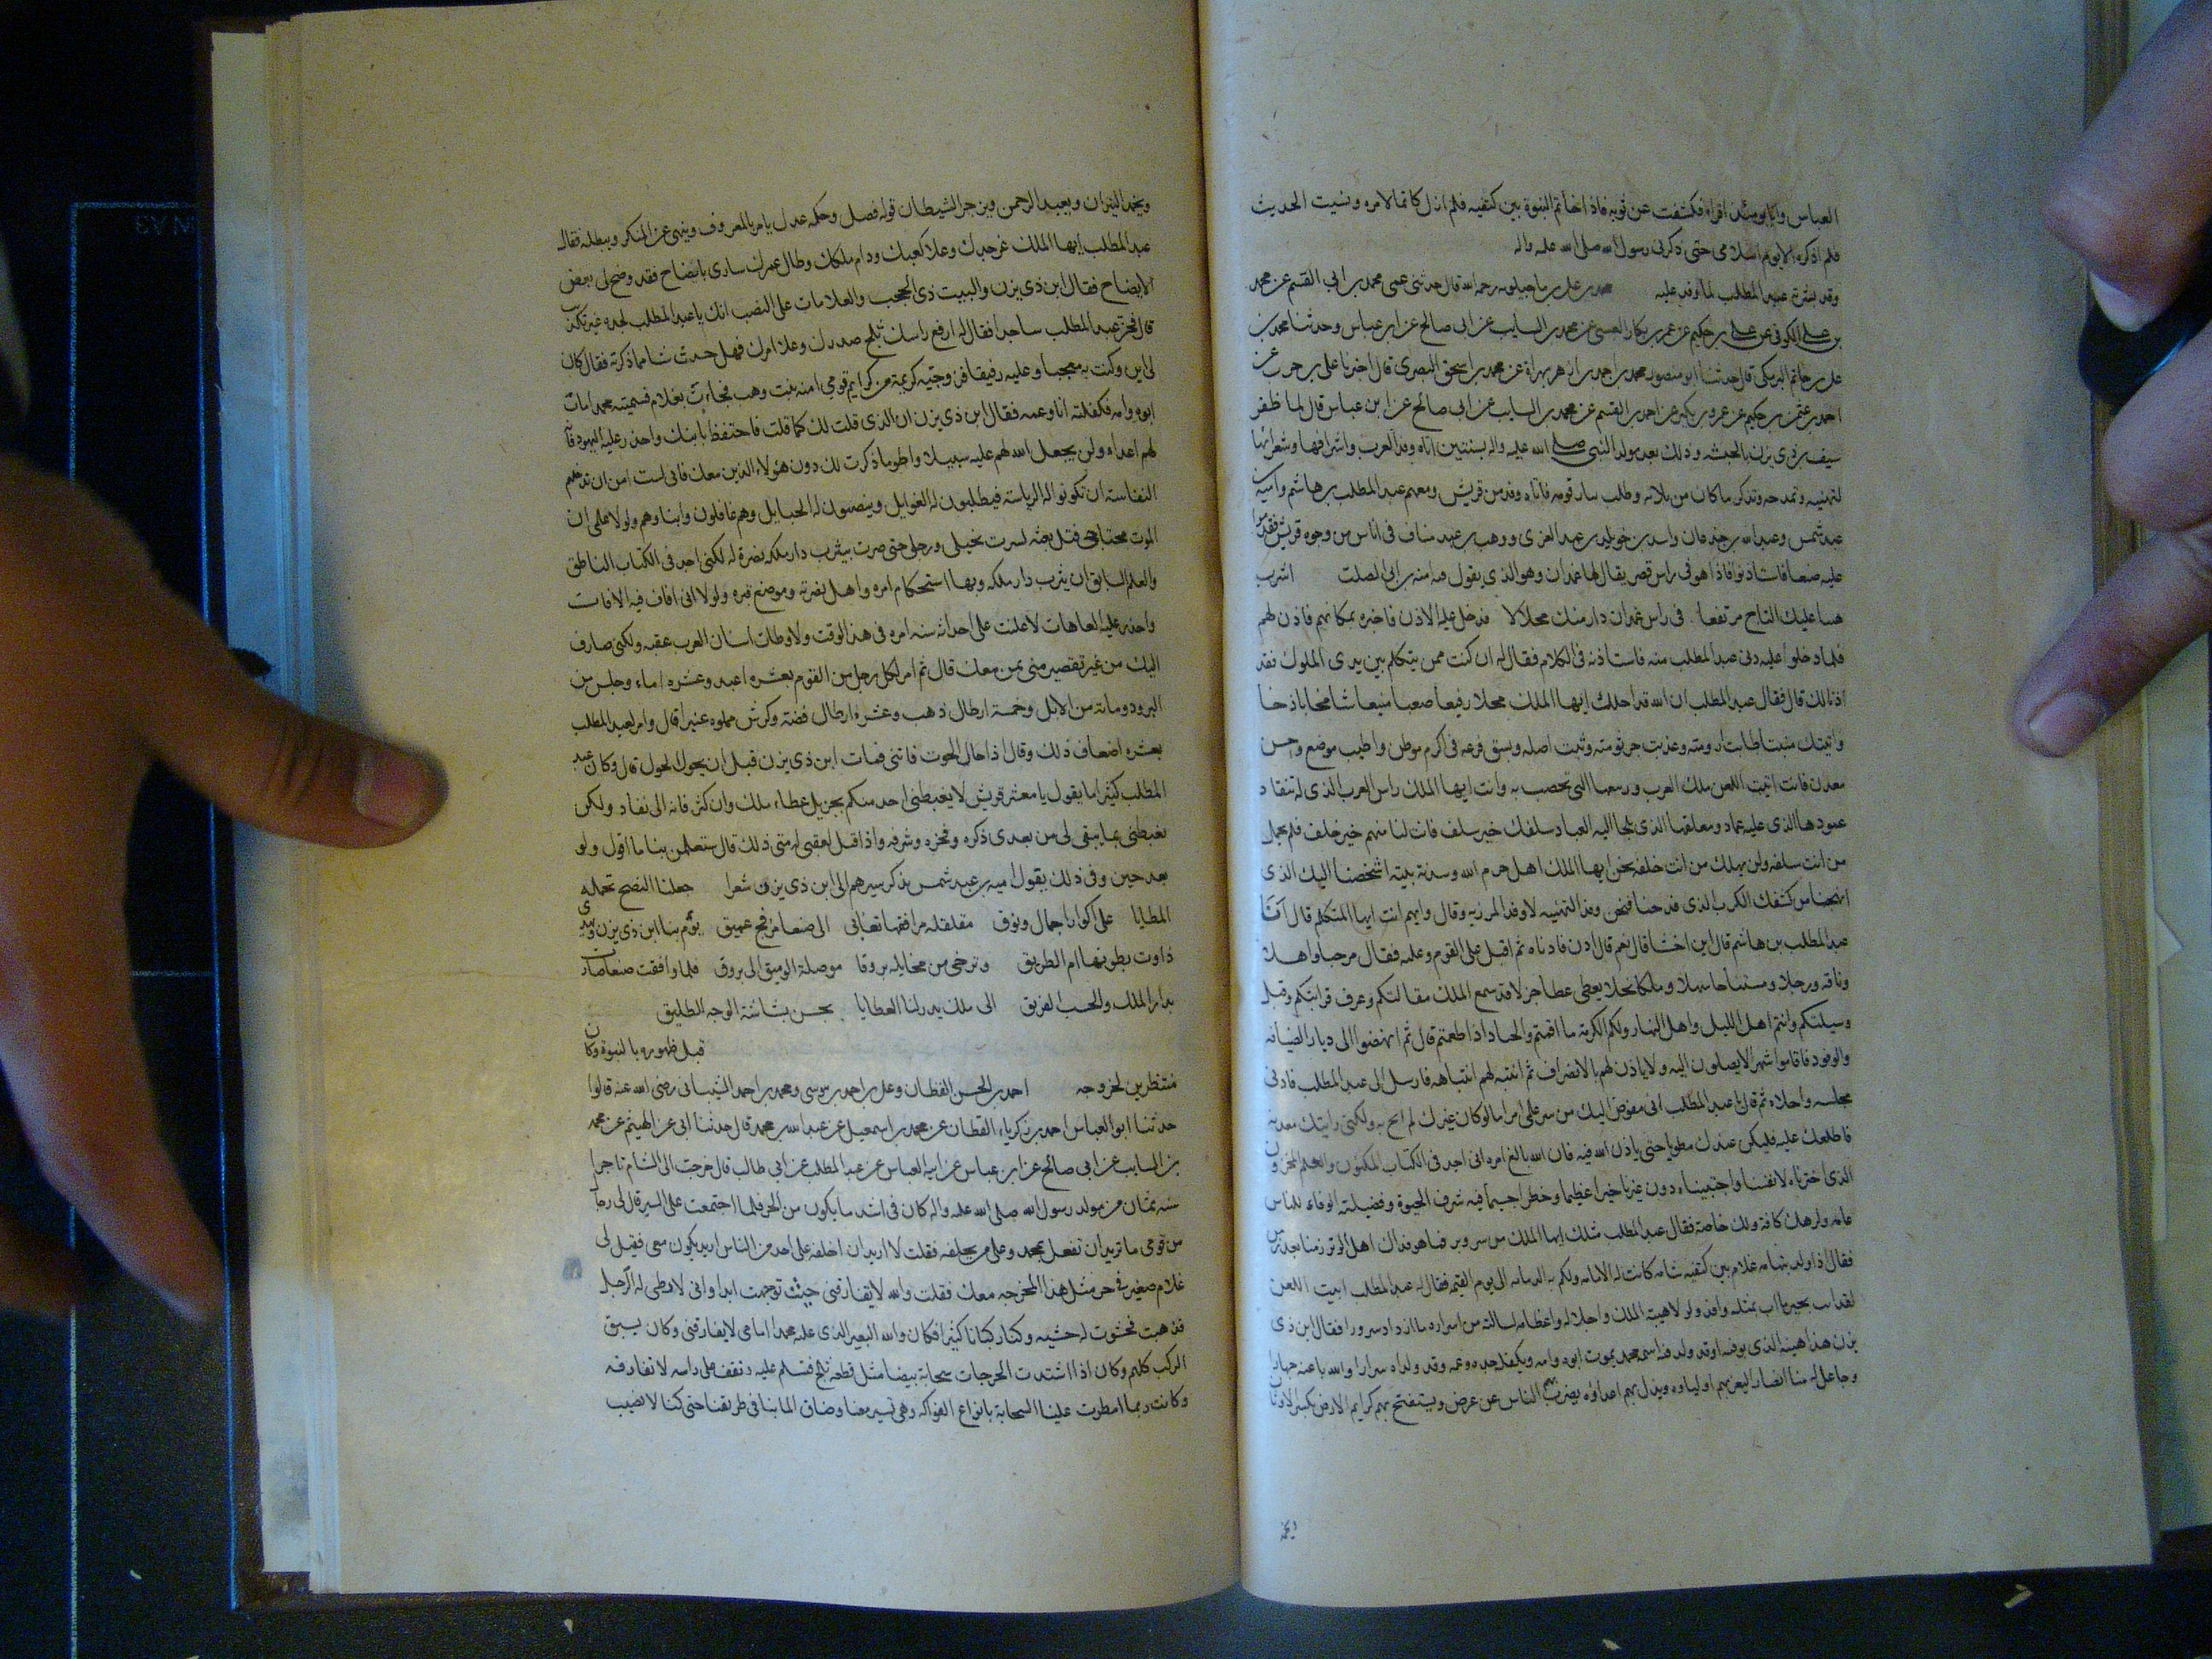 العباس وانا يومئذ اقراه فكشفت عن ثوبه فاذا خاتم النبوة بين كتفيه فلم ازل كاتما لامره ونسيت الحديث
فلم اذكره الا يوم اسلامي حتى ذكرني رسول الله صلى الله عليه واله
وقد بشر به عبد المطلب لما وفد عليه محمد بن علي بن ماجيلويه رحمه الله قال حدثني عمي محمد بن ابي القسم عن محمد
بن علي الكوفي عن علي بن حكيم عن عمرو بن بكار العبسي عن محمد بن السايب عن ابي صالح عن ابن عباس وحدثنا محمد بن
علي بن حاتم البرمكي قال حدثنا ابو منصور محمد بن احمد بن ازهر بهراة عن محمد بن اسحق البصري قال اخبرنا علي بن حرب عن
احمد بن عثمن بن حكيم عن عمرو بن بكير عن احمد بن القسم عن محمد بن السايب عن ابي صالح عن ابن عباس قال لما ظفر
سيف بن ذي يزن بالحبشة وذلك بعد مولد النبي صلى الله عليه واله بسنتين اتاه وفد العرب واشرافها وشعرائها
لتهنيه وتمدحه وتذكر ما كان من بلائه وطلبه بثار قومه فاتاه وفد من قريش ومعهم عبد المطلب بن هاشم وامية بن
عبد شمس وعبد الله بن جذعان واسد بن خويلد بن عبد العزى ووهب بن عبد مناف في اناس من وجوه قريش فقدموا
عليه صنعا فاستاذنوا فاذا هو في راس قصر يقال لها غمدان وهو الذي يقول فيه امية بن ابي الصلت اشرب
هنيا عليك التاج مرتفعا في راس غمدان دار منك محلالا فدخل عليه الاذن فاخبره بمكانهم فاذن لهم
فلما دخلوا عليه دنى عبد المطلب منه فاستاذنه في الكلام فقال له ان كنت ممن يتكلم بين يدي الملوك فقد
اذنا لك قال فقال عبد المطلب ان الله قد احلك ايها الملك محلا رفيعا صعبا منيعا شامخا باذخا
وانبتك منبتا طابت ارومته وعذبت جرثومته وثبت اصله وبسق فرعه في اكرم موطن واطيب موضع واحسن
معدن فانت ابيت اللعن ملك العرب وربيعها التي تخصب به وانت ايها الملك راس العرب الذي له تنقاد
عمودها الذي عليه عماد ومعلقها الذي يلجا اليه العباد سلفك خير سلف فانت لنا منهم خير خلف فلم يخمل
من انت سلفه ولن يهلك من انت خلفه نحن ايها الملك اهل حرم الله وسدنة بيته اشخصنا اليك الذي
ابهجنا من كشفك الكرب الذي فدحنا فنحن وفد التهنيه لا وفد المرزيه وقال وايهم انت ايها المتكلم قال انا
عبد المطلب بن هاشم قال ابن اختنا قال نعم قال ادن فادناه ثم اقبل على القوم وعليه فقال مرحبا واهلا
وناقه ورحلا ومستناخا سهلا وملكا نحلا يعطي عطا جزلا قد سمع الملك مقالتكم وعرف قرابتكم وقبل
وسيلتكم وانتم اهل الليل واهل النهار ولكم الكرمة ما اقمتم والحبا اذا ظعنتم قال ثم انهضوا الى ديار الضيافه
والوفود فاقاموا شهرا لا يصلون اليه ولا ياذن لهم بالانصراف ثم انتبه لهم انتباهه فارسل الى عبد المطلب فادنى
مجلسه واخلاه ثم قال يا عبد المطلب اني مفوض اليك من سر علمي امرا ما لو كان غيرك لم ابح به ولكني رايتك معدنه
فاطلعك عليه فليكن عندك مطويا حتى ياذن الله فيه فان الله بالغ امره اني اجد في الكتاب المكنون والعلم المخزون
الذي اخترناه لانفسنا واحتجبناه دون غيرنا خيرا عظيما وخطرا جسيما فيه شرف الحيوة وفضيلة الوفاء للناس
عامة ولرهطك كافة ولك خاصة فقال عبد المطلب مثلك ايها الملك من سر وبر فما هو فداك اهل الوبر زمنا بعد زمن
فقال اذا ولد بتهامه غلام بين كتفيه شامه كانت له الامامه ولكم به الدعامه الى يوم القيمه فقال له عبد المطلب ابيت اللعن
لقد ابت بخير ما اب بمثله وافد ولولا هيبة الملك واجلاله واعظامه لسالته من اسراره ما ازداد سرورا فقال ابن ذي
يزن هذا حينه الذي يولد فيه او قد ولد فيه اسمه محمد يموت ابوه وامه ويكفله جده وعمه وقد ولد سرارا والله باعثه جهارا
وجاعل له منا انصارا ليعز بهم اولياوه ويذل بهم اعداؤه يضرب بهم الناس عن عرض ويستفتح بهم كرايم الارض يكسر الاوثان
ويخمد
ويخمد النيران ويعبد الرحمن ويزجر الشيطان قوله فصل وحكمه عدل يامر بالمعروف ويفعله وينهى عن المنكر ويبطله فقال
عبد المطلب ايها الملك عز جدك وعلا كعبك ودام ملكك وطال عمرك فهل الملك ساري بافصاح فقد وضح لي بعض
الايضاح فقال ابن ذي يزن والبيت ذي الحجب والعلامات على النصب انك يا عبد المطلب لجده غير كذب
قال فخر عبد المطلب ساجدا فقال له ارفع راسك ثلج صدرك وعلا امرك فهل احسست شيا مما ذكرته فقال كان
لي ابن وكنت به معجبا وعليه رفيقا فزوجته كريمة من كرايم قومي امنه بنت وهب فجاءت بغلام فسميته محمدا مات
ابوه وامه فكفلته انا وعمه فقال ابن ذي يزن ان الذي قلت لك كما قلت فاحتفظ بابنك واحذر عليه اليهود فانهم
لهم اعداء ولن يجعل الله لهم عليه سبيلا واطو ما ذكرت لك دون هؤلاء الذين معك فاني لست امن ان تدخلهم
النفاسة ان تكون له الرياسه فيطلبون له الغوايل وينصبون له الحبايل وهم فاعلون وابناوهم ولولا علمي ان
الموت مجتاحي قبل مبعثه لسرت بخيلي ورجلي حتى صرت بيثرب دار ملكه نصرة له لكني اجد في الكتاب الناطق
والعلم السابق ان يثرب دار ملكه وبها استحكام امره واهل نصرته وموضع قبره ولولا اني اخاف فيه الافات
واحذر عليه العاهات لاعلنت على حداثة سنه امره في هذا الوقت ولاوطات اسنان العرب عقبه ولكني صارف
اليك من غير تقصير مني بمن معك قال ثم امر لكل رجل من القوم بعشرة اعبد وعشرة اماء وحلتين من
البرود ومائة من الابل وخمسة ارطال ذهب وعشرة ارطال فضة وكرش مملوه عنبرا قال وامر لعبد المطلب
بعشرة اضعاف ذلك وقال اذا حال الحول فاتني فمات ابن ذي يزن قبل ان يحول الحول قال وكان عبد
المطلب كثيرا ما يقول يا معشر قريش لا يغبطني احد منكم بجزيل عطاء الملك وان كثر فانه الى نفاد ولكن
يغبطني بما يبقى لي من بعدي ذكره وفخره وشرفه واذا قيل لعقبي له متى ذلك قال ستعلمن بنا ما اقول ولو
بعد حين وفي ذلك يقول اميه بن عبد شمس يذكر مسيرهم الى ابن ذي يزن شعرا جعلنا النصح تحمله
المطايا على اكوار اجمال ونوق مغلغلة مرافقها تعالى الى صنعا من فج عميق يؤم بنا ابن ذي يزن وتهدي
ذوات بطونها ام الطريق وتزجي من مخايله بروقا موصلة الوميق الى بروق فلما وافقت صنعا صارت
بدار الملك والحسب العريق الى ملك يدر لنا العطايا بحسن بشاشة الوجه الطليق
قبل ظهوره بالنبوة وكان
منتظرين لخروجه احمد بن الحسن القطان وعلي بن احمد بن موسى ومحمد بن احمد الشيباني رضي الله عنه قالوا
حدثنا ابو العباس احمد بن زكرياء القطان عن محمد بن اسمعيل عن عبد الله بن محمد قال حدثنا ابي عن الهيثم عن محمد
بن السايب عن ابي صالح عن ابن عباس عن ابيه العباس عن عبد المطلب عن ابي طالب قال خرجت الى الشام تاجرا
سنه ثمان من مولد رسول الله صلى الله عليه واله كان في اشد ما يكون من الحر فلما اجتمعت على السير قال لي رجال
من قومي ما تريد ان تفعل بمحمد وعلى من تخلفه فقلت لا اريد ان اخلفه على احد من الناس اريد يكون معي فقيل لي
غلام صغير في حر مثل هذا تخرجه معك فقلت والله لا يفارقني حيث توجهت ابدا واني لاوطي له الرحل
فذهبت فحشوت له حشيه وكنا ركبانا كثيرا فكان والله البعير الذي عليه محمد امامي لا يفارقني وكان يسبق
الركب كلهم وكان اذا اشتدت الحر جات سحابة بيضا مثل قطعه ثلج فتسلم عليه وتقف على راسه لا تفارقه
وكانت ربما امطرت علينا السحابة بانواع الفواكه وهي تسير معنا وضاق الما بنا في طريقنا حتى كنا لا نصيب